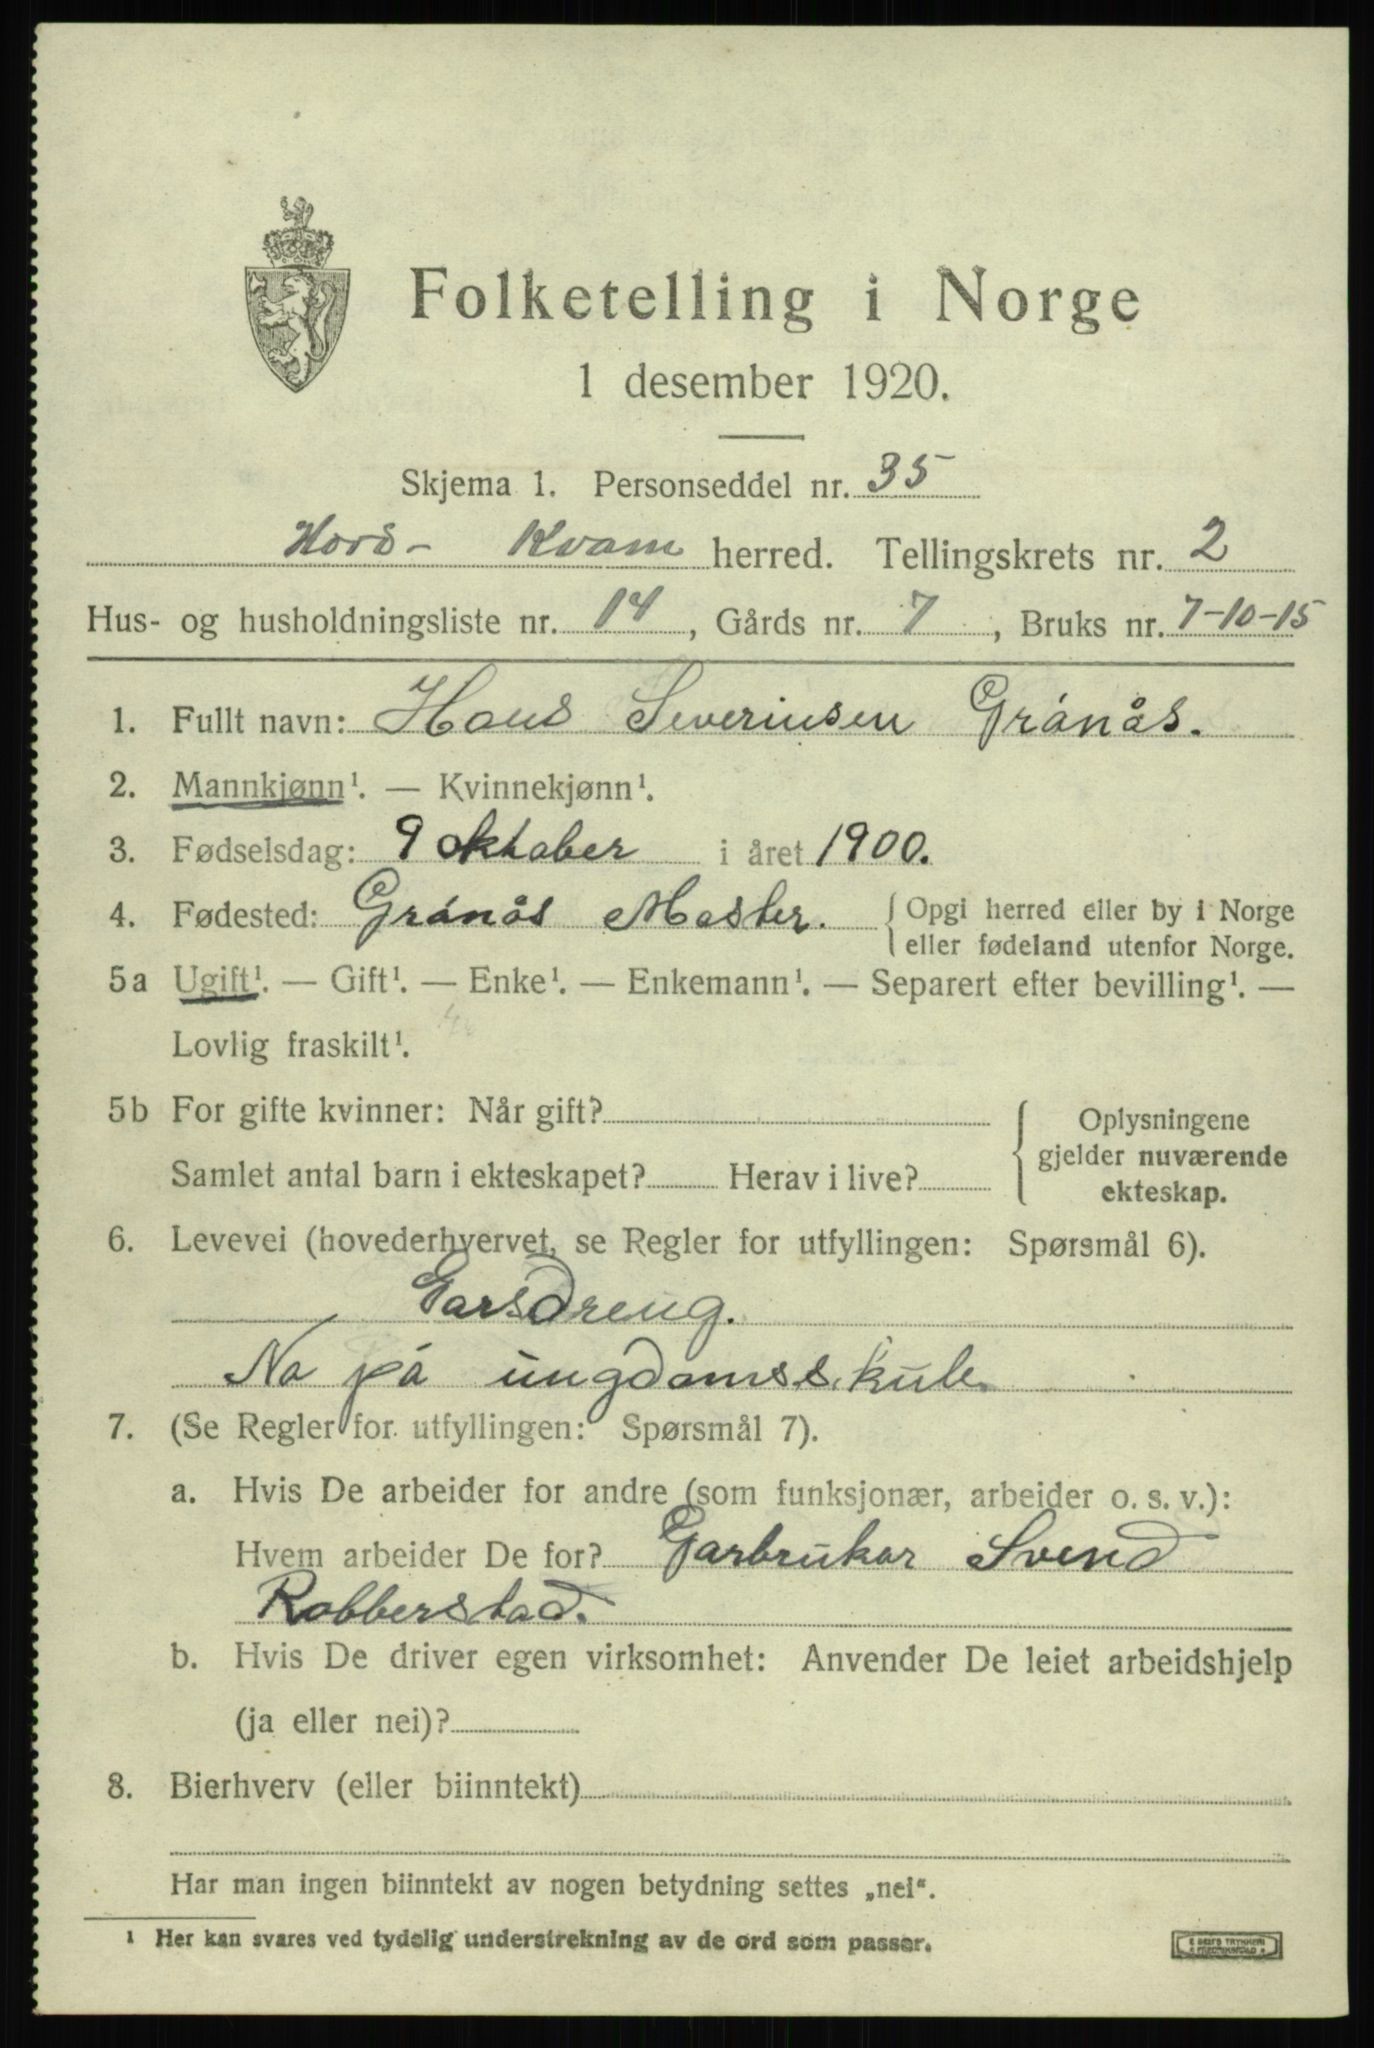 Folketelling i Norge
1 desember 1920.
Skjema 1. Personseddel nr. 35
Hord- Kvam herred. Tellingskrets nr. 2
Hus- og husholdningsliste nr. 14, Gårds nr. 7, Bruks nr. 7-10-15
1. Fullt navn: Hans Severinsen Grónås.
2. Mannkjønn¹. — Kvinnekjønn¹.
3. Fødselsdag: 9 oktober i året 1900.
4. Fødested: Grónås Moster. Opgi herred eller by i Norge
eller fødeland utenfor Norge.
5a Ugift¹. — Gift¹. — Enke¹. — Enkemann¹. — Separert efter bevilling¹. —
Lovlig fraskilt¹.
5b For gifte kvinner: Når gift? Oplysningene
gjelder nuværende
Samlet antal barn i ekteskapet? Herav i live? ekteskap.
6. Levevei (hovederhvervet, se Regler for utfyllingen: Spørsmål 6).
Garsdreng.
No på ungdomsskule.
7. (Se Regler for utfyllingen: Spørsmål 7).
a. Hvis De arbeider for andre (som funksjonær, arbeider o. s. v.):
Hvem arbeider De for? Garbrukar Svend
Robberstad.
b. Hvis De driver egen virksomhet: Anvender De leiet arbeidshjelp
(ja eller nei)?
8. Bierhverv (eller biinntekt)
Har man ingen biinntekt av nogen betydning settes „nei“.
¹ Her kan svares ved tydelig understrekning av de ord som passer.